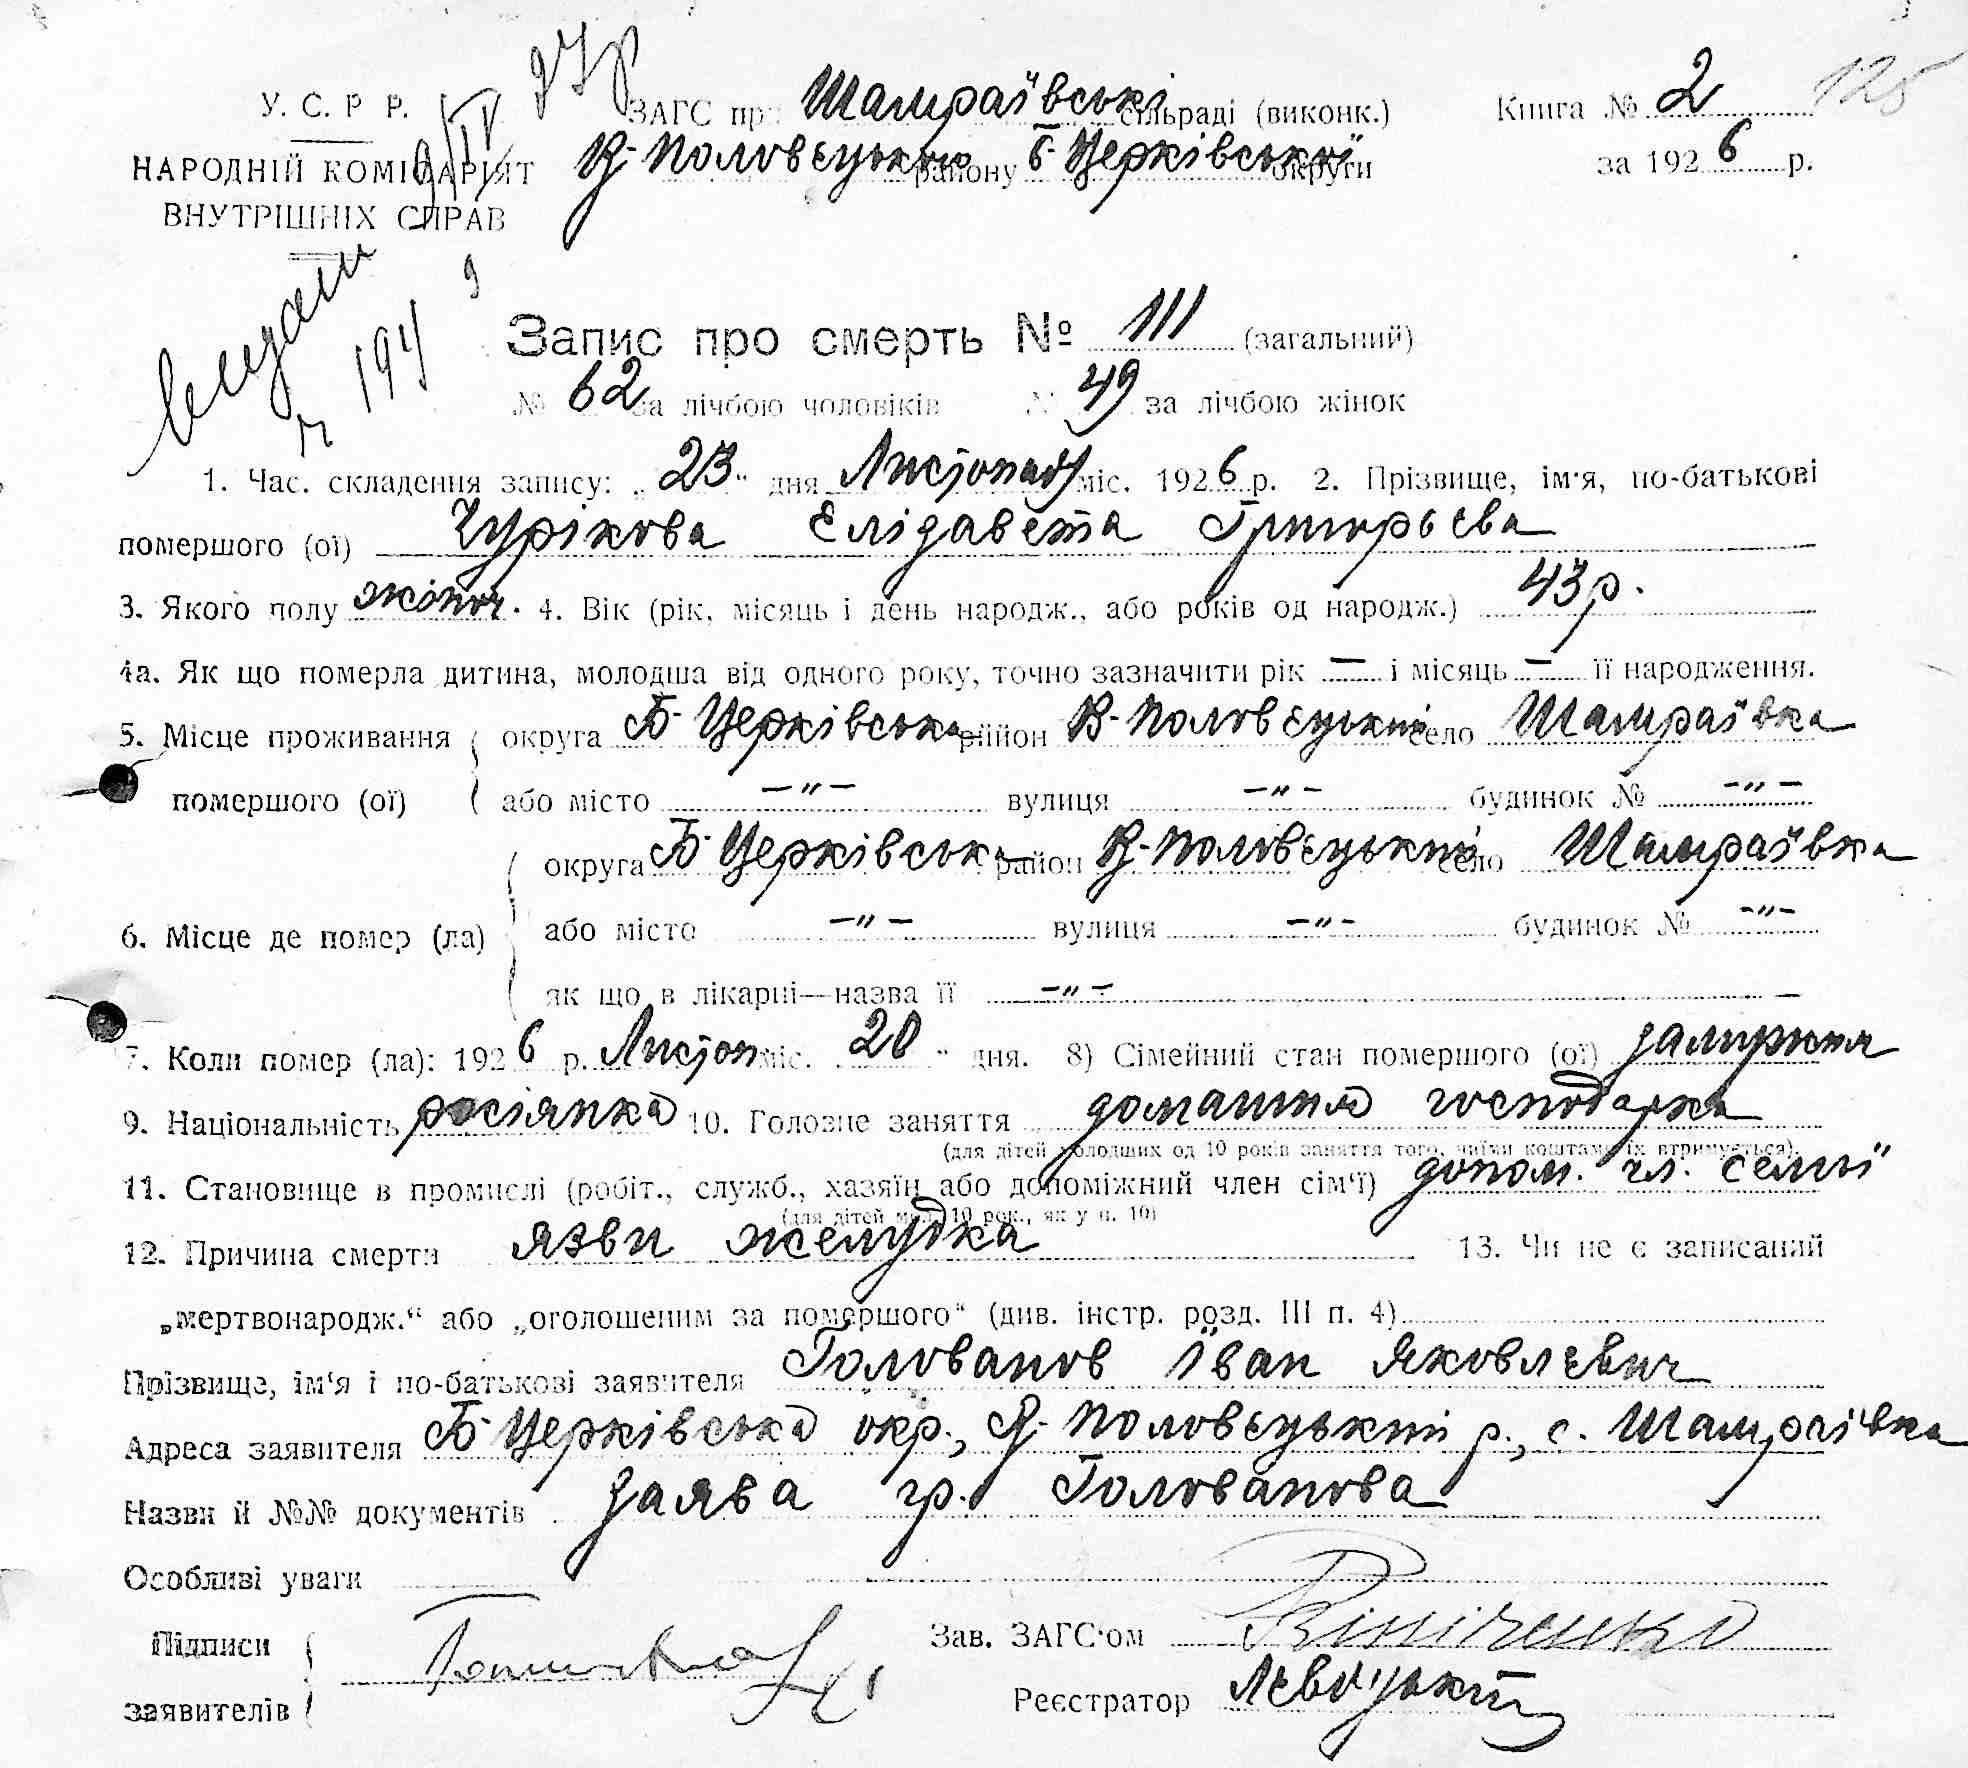 125
У. С. Р. Р. ЗАГС при Шамраївські сільраді (виконк.) Книга № 2
НАРОДНІЙ КОМІСАРІЯТ В-Половецького району Б-Церківської округи за 1926 р.
ВНУТРІШНІХ СПРАВ
Запис про смерть № 111 (загальний)
№ 62 за лічбою чоловіків № 49 за лічбою жінок
1. Час. складення запису: „23“ дня Листопад міс. 1926 р. 2. Прізвище, ім'я, по-батькові
помершого (ої) Чурікова Єлізавета Григорьєва
3. Якого полу жіноч. 4. Вік (рік, місяць і день народж., або років од народж.) 43 р.
4а. Як що померла дитина, молодша від одного року, точно зазначити рік — і місяць — її народження.
5. Місце проживання округа Б-Церківська район В-Половецький село Шамраївка
помершого (ої) або місто —„— вулиця —„— будинок № —„—
округа Б-Церківська район В-Половецький село Шамраївка
6. Місце де помер (ла) або місто —„— вулиця —„— будинок № —„—
як що в лікарні—назва її —„—
7. Коли помер (ла): 1926 р. Листоп міс. 20 “ дня. 8) Сімейний стан помершого (ої) замужня
9. Національність росіянка 10. Головне заняття домашня господарка
(для дітей молодших од 10 років заняття того, чиїми коштами їх втримується).
11. Становище в промислі (робіт., служб., хазяїн або допоміжний член сім'ї) допом. чл. семьї
(для дітей мол. 10 рок., як у п. 10)
12. Причина смерти язви желудка 13. Чи не є записаний
„мертвонародж.“ або „оголошеним за помершого“ (див. інстр. розд. III п. 4)
Прізвище, ім'я і по-батькові заявителя Голованов Іван Яковлевич
Адреса заявителя Б-Церківська окр., В-Половецький р., с. Шамраївка
Назви й №№ документів заява гр. Голованова
Особливі уваги
Підписи Зав. ЗАГС'ом Вініченко
заявителів Реєстратор Левицький